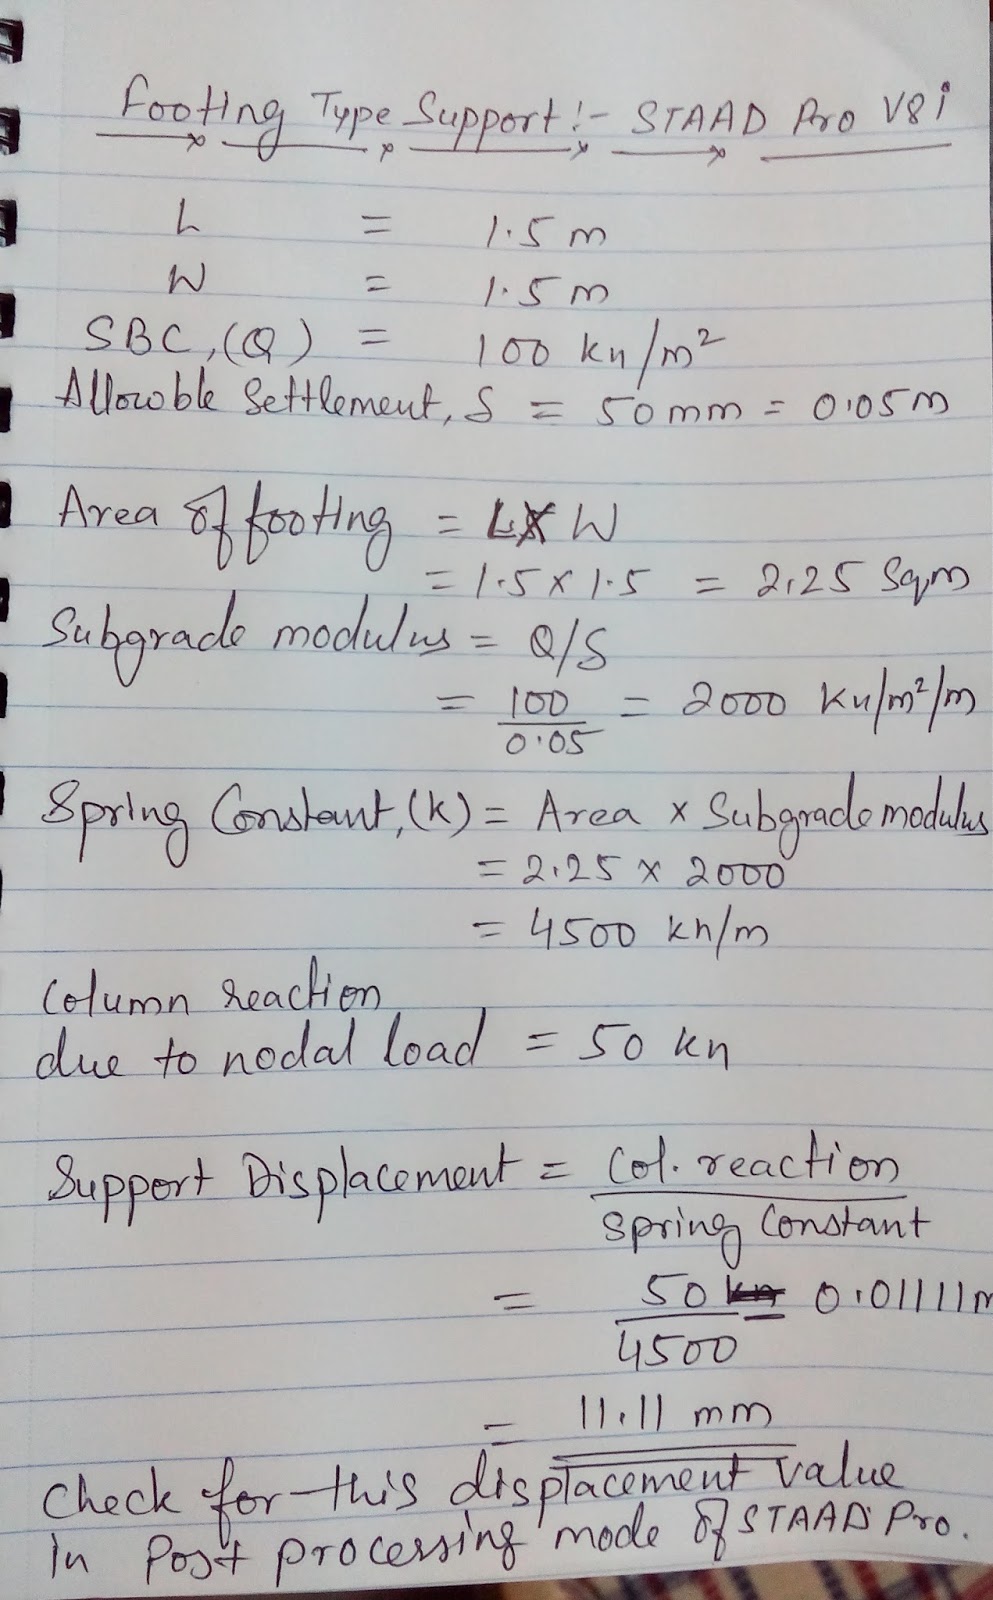 Footing Type Support:- STAAD Pro V8i
L = 1.5 m
W = 1.5 m
SBC, (Q) = 100 kn/m²
Allowable Settlement, S = 50 mm = 0.05 m
Area of footing = L X W
= 1.5 x 1.5 = 2.25 Sqm
Subgrade modulus = Q/S
= 100/0.05 = 2000 kn/m²/m
Spring Constant, (K) = Area x Subgrade modulus
= 2.25 x 2000
= 4500 kn/m
Column reaction
due to nodal load = 50 kn
Support Displacement = Col. reaction
Spring Constant
= 50 = 0.01111 m
4500
= 11.11 mm
Check for this displacement value
in Post processing mode of STAAD Pro.